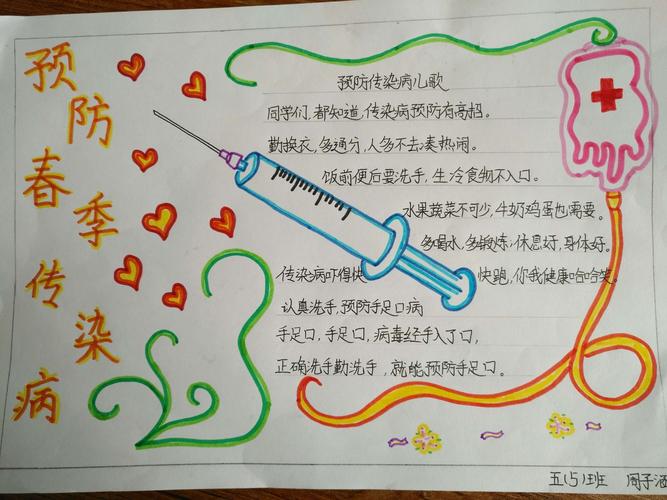 预防春季传染病
预防传染病儿歌
同学们,都知道,传染病预防有高招。
勤换衣,多通分,人多不去凑热闹。
饭前便后要洗手,生冷食物不入口。
水果蔬菜不可少,牛奶鸡蛋也需要。
多喝水,多锻炼,休息好,身体好。
传染病吓得快快跑,你我健康哈哈笑。
认真洗手,预防手足口病
手足口,手足口,病毒经手入了口,
正确洗手勤洗手,就能预防手足口。
五(5)班 周子涵